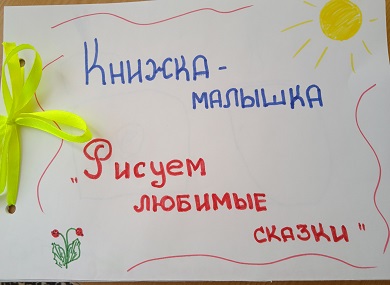 Книжка-
малышка
„Рисуем
любимые
сказки"